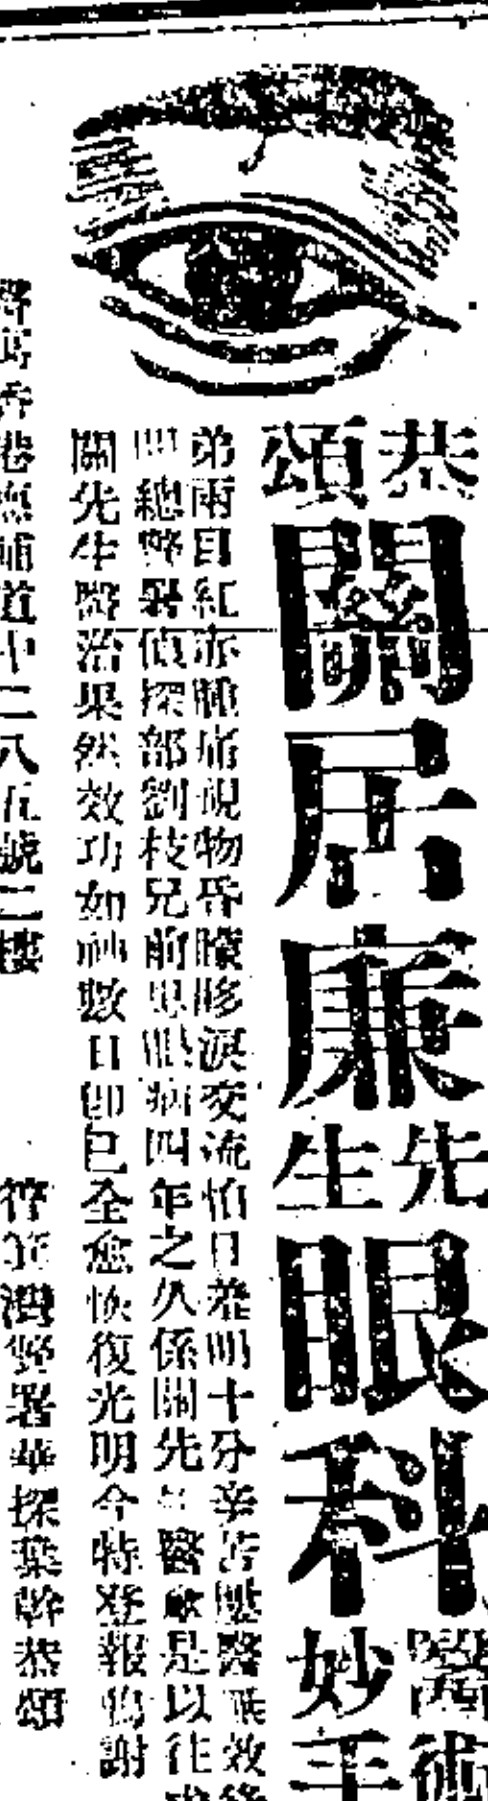 恭頌
關居廉
先生
眼科
醫術
妙手
弟兩目紅赤腫痛視物昏矇眵淚交流怕日羞明十分辛苦屢醫無效後
總警署偵探部劉枝兄前患眼病四年之久係關先生醫痊是以往
關先生醫治果然效功如神數日即已全愈恢復光明今特登報鳴謝
醫寓香港德輔道中二八五號二樓
筲箕灣警署華探葉幹恭頌